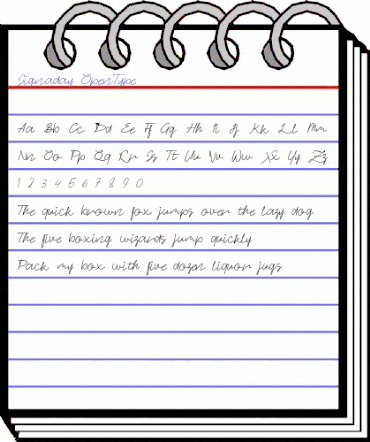 Signaday OpenType
Aa Bb Cc Dd Ee Ff Gg Hh Ii Jj Kk Ll Mm
Nn Oo Pp Qq Rr Ss Tt Uu Vv Ww Xx Yy Zz
1 2 3 4 5 6 7 8 9 0
The quick brown fox jumps over the lazy dog
The five boxing wizards jump quickly
Pack my box with five dozen liquor jugs